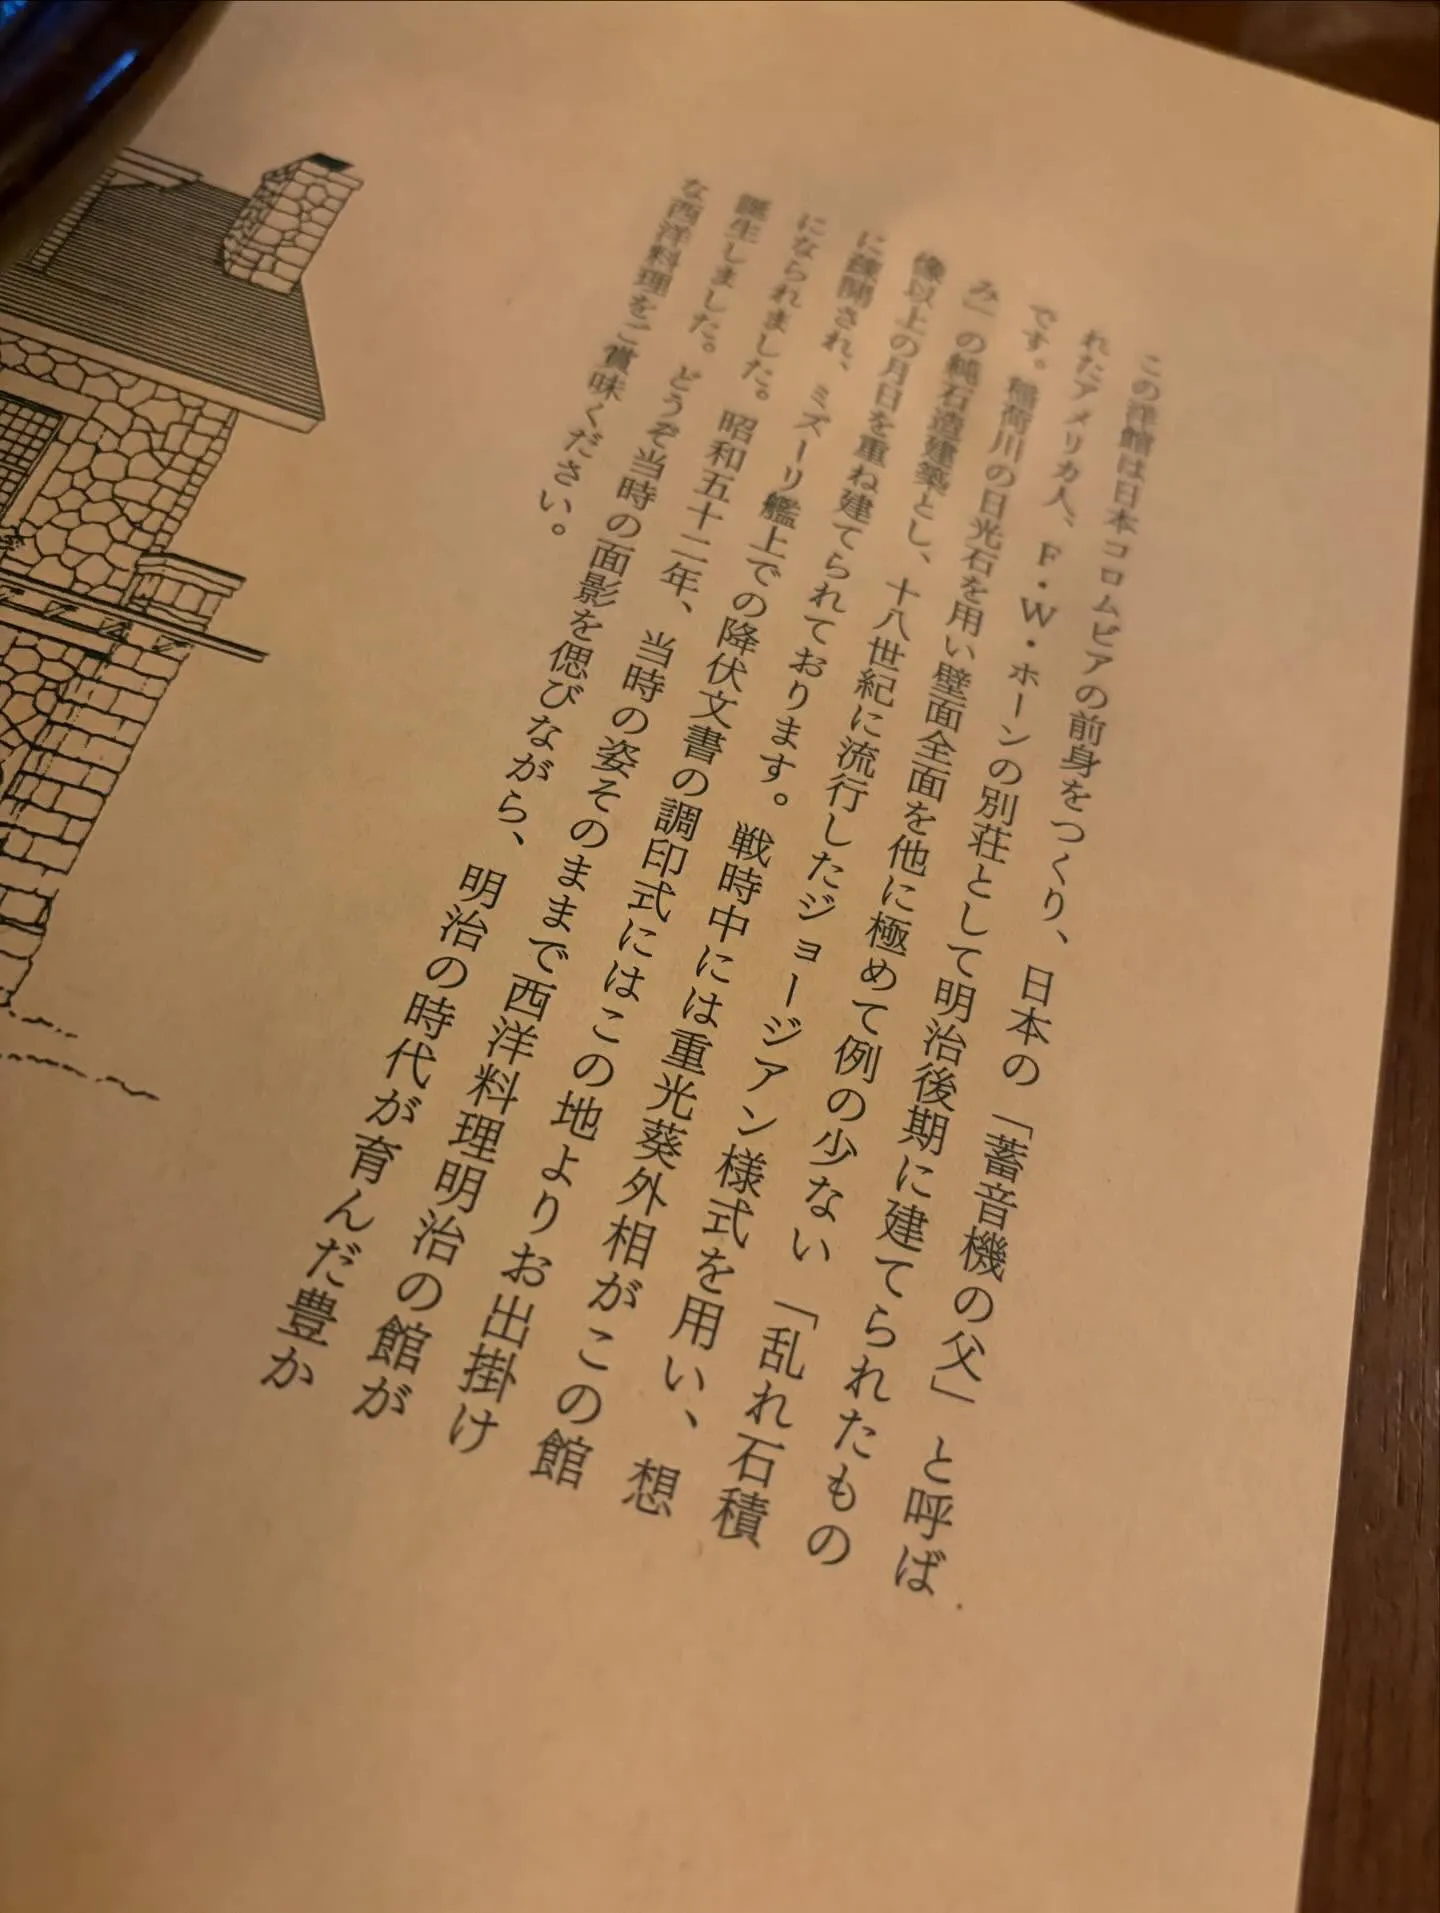 この洋館は日本コロムビアの前身をつくり、日本の「蓄音機の父」と呼ば
れたアメリカ人、F・W・ホーンの別荘として明治後期に建てられたもの
です。稲荷川の日光石を用い壁面全面を他に極めて例の少ない「乱れ石積
み」の純石造建築とし、十八世紀に流行したジョージアン様式を用い、想
像以上の月日を重ね建てられております。戦時中には重光葵外相がこの館
に疎開され、ミズーリ艦上での降伏文書の調印式にはこの地よりお出掛け
になられました。昭和五十二年、当時の姿そのままで西洋料理明治の館が
誕生しました。どうぞ当時の面影を偲びながら、明治の時代が育んだ豊か
な西洋料理をご賞味ください。